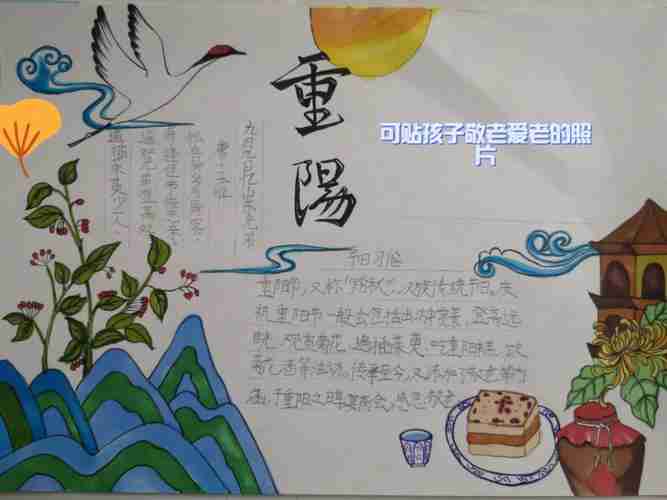 重
陽
可贴孩子敬老爱老的照
片
九月九日忆山东兄弟
唐·王维
独在异乡为异客，
每逢佳节倍思亲。
遥知兄弟登高处，
遍插茱萸少一人。
节日习俗
重阳节，又称"踏秋"，汉族传统节日。庆
祝重阳节一般会包括出游赏景、登高远
眺、观赏菊花、遍插茱萸、吃重阳糕、饮
菊花酒等活动。传承至今，又添加了敬老等内
涵，于重阳之日享宴高会，感恩敬老。